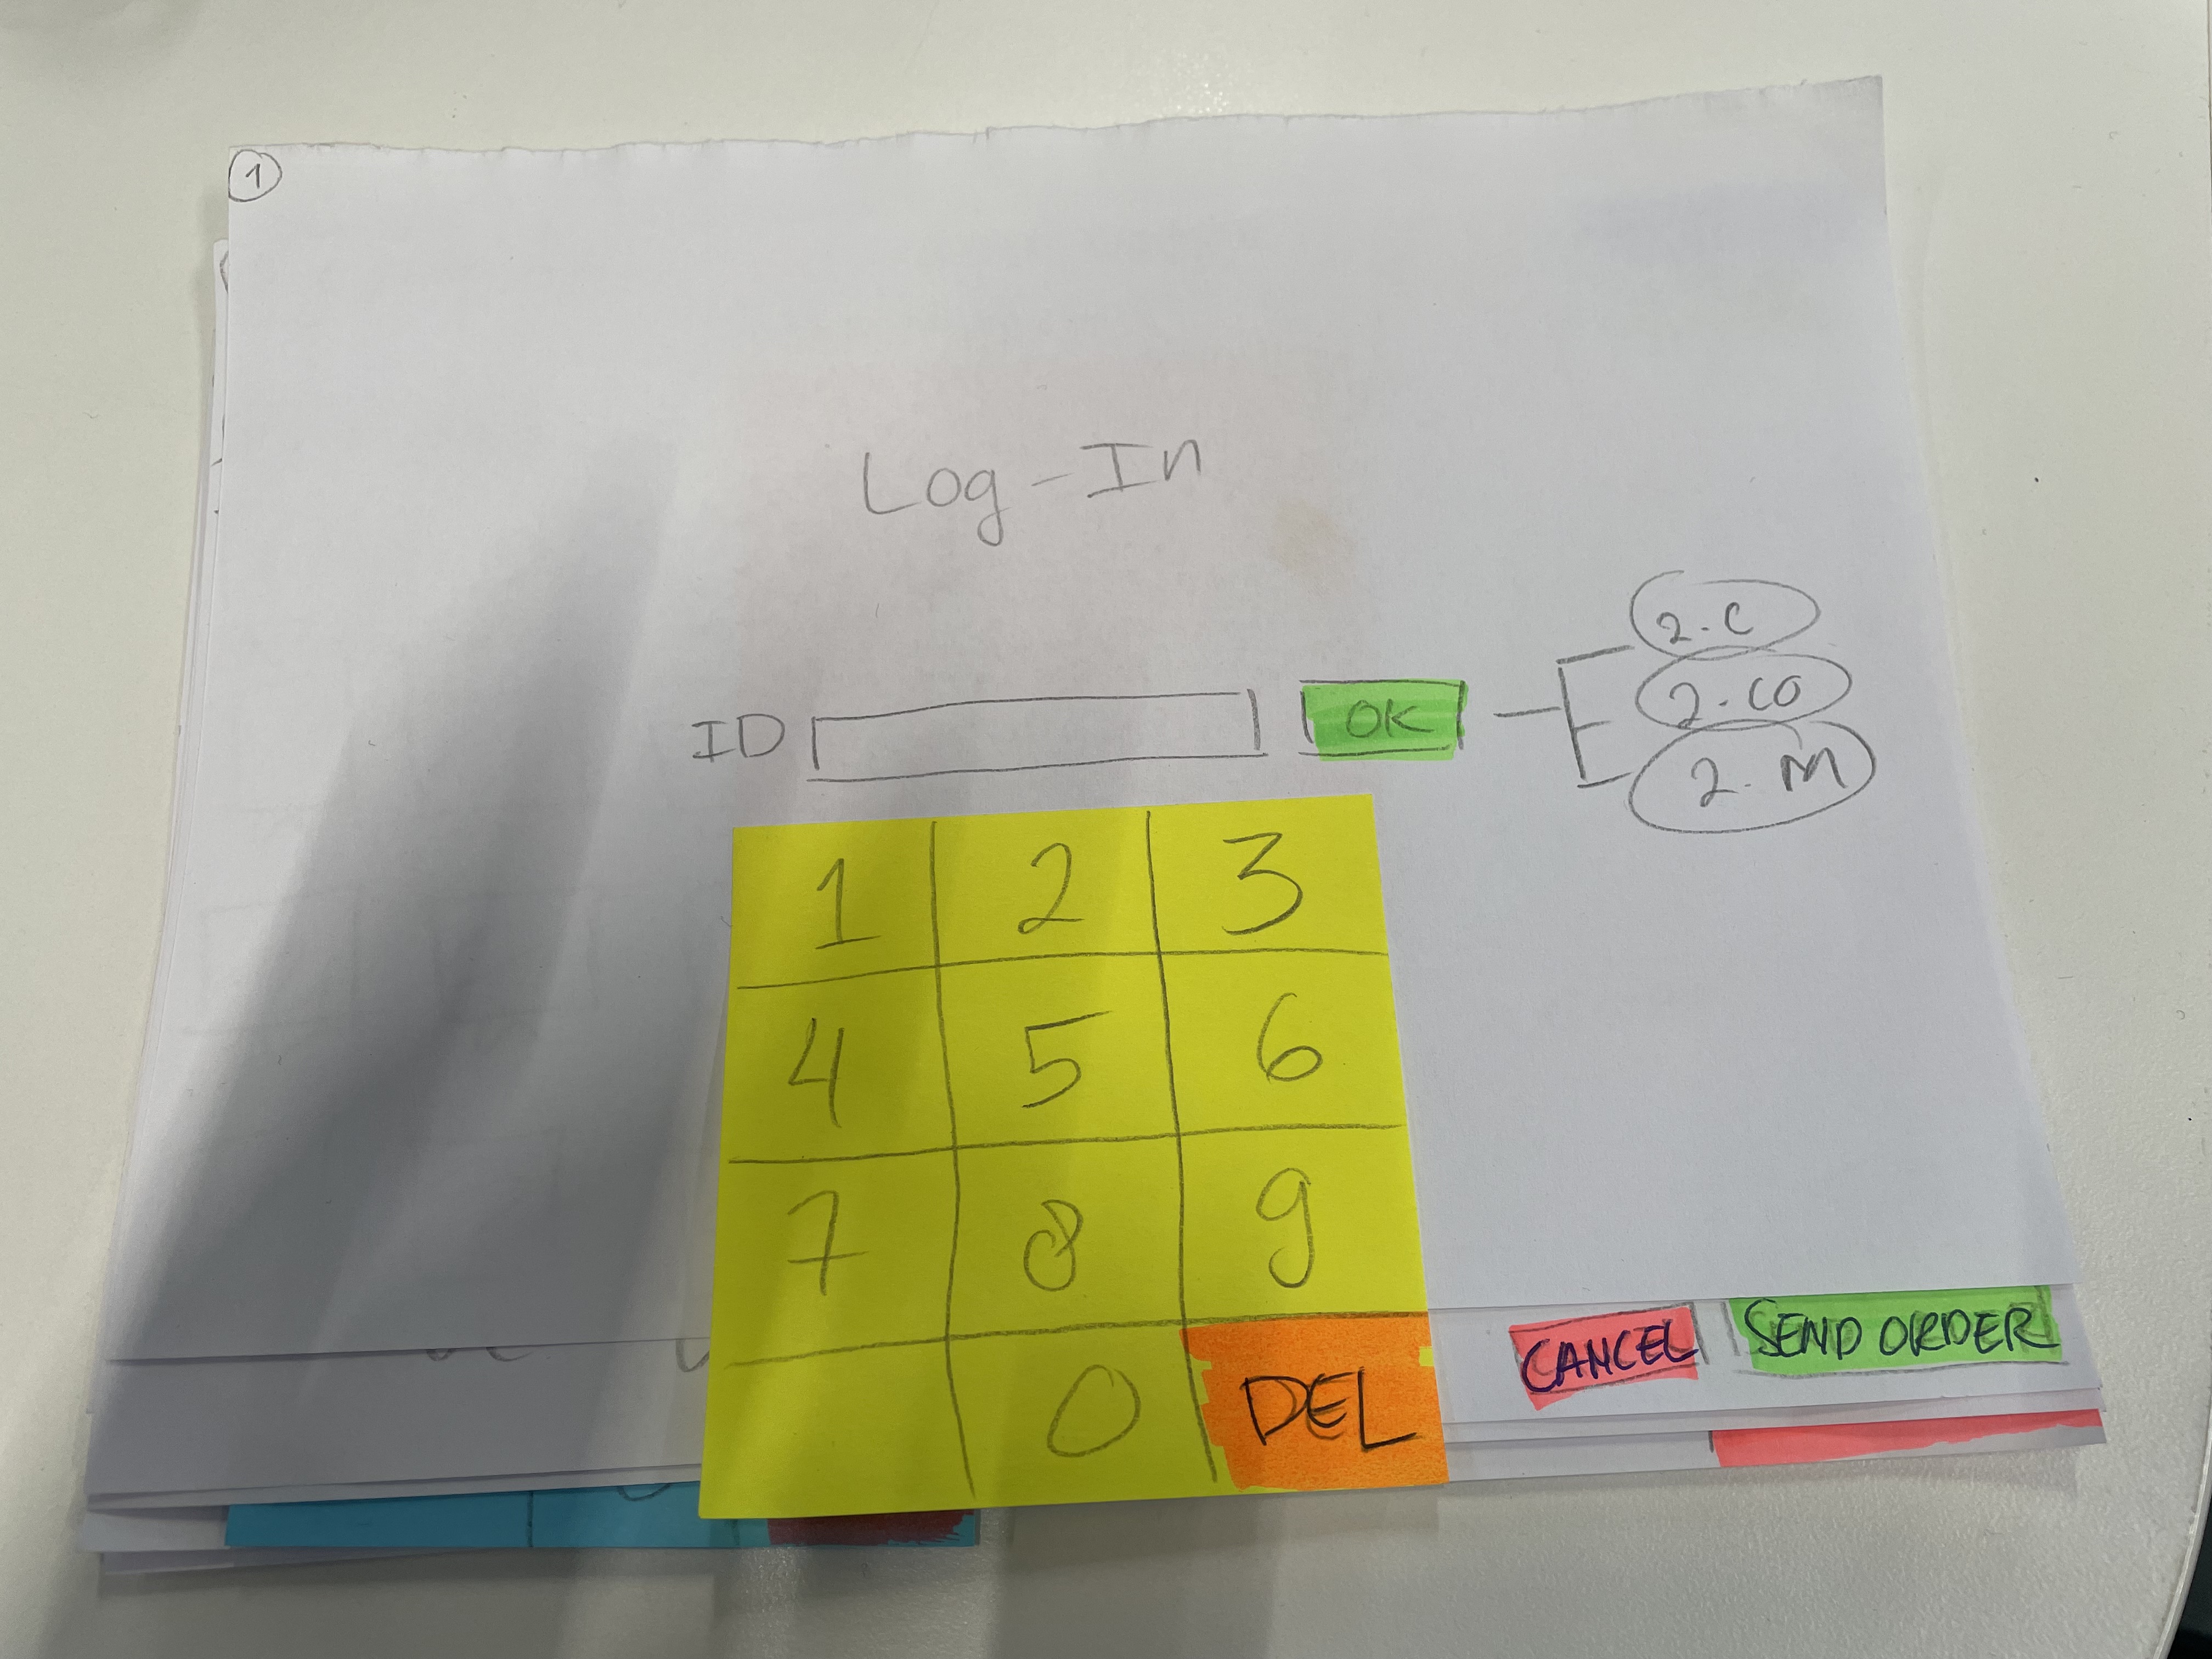 1
Log-In
ID OK
2.C
2.CO
2.M
1 2 3
4 5 6
7 8 9
0 DEL
CANCEL SEND ORDER